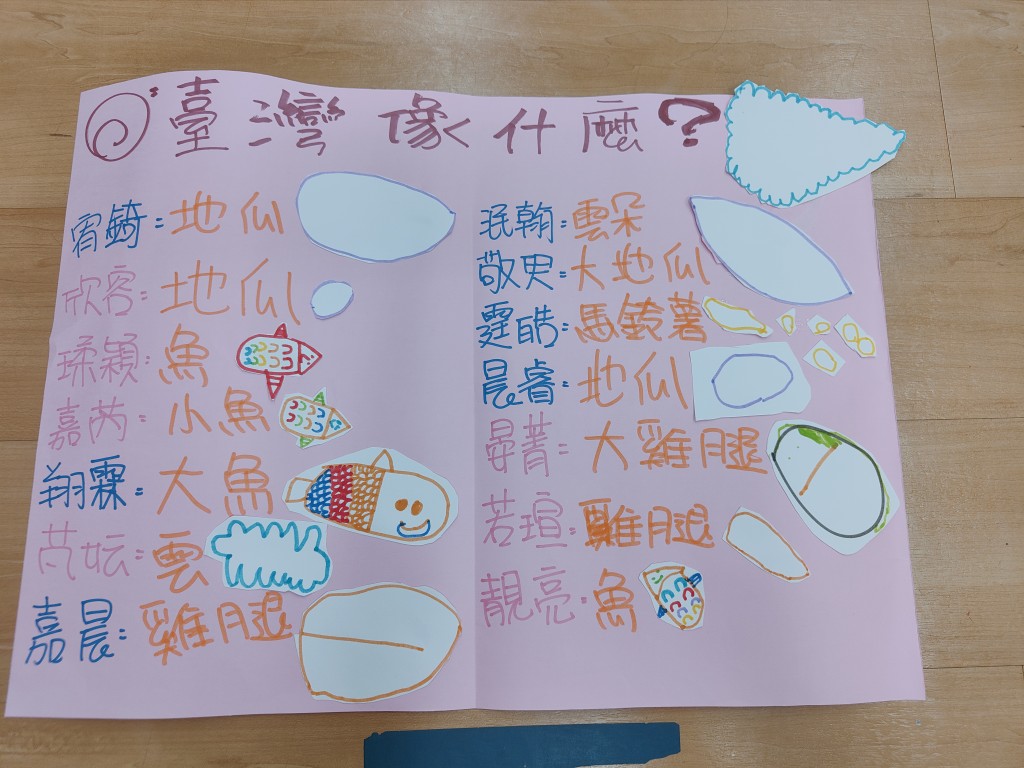 臺灣像什麼?
宥錡:地瓜
欣容:地瓜
琹穎:魚
嘉芮:小魚
翔霖:大魚
芃妘:雲
嘉晨:雞腿
珉翰:雲朵
敬男:大地瓜
霆皓:馬鈴薯
晨睿:地瓜
晏菁:大雞腿
若瑄:雞腿
靚亮:魚